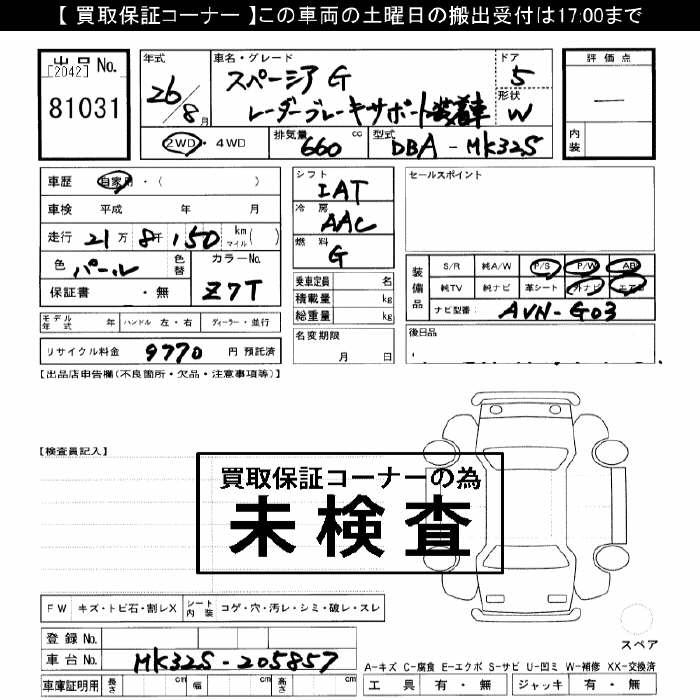 【 買取保証コーナー 】この車両の土曜日の搬出受付は17:00まで
出品 No.
[2042]
81031
年式
26/8月
車名・グレード
スペーシア G
レーダーブレーキサポート装着車
ドア
5
形状
W
評価点
—
内装
2WD・4WD
排気量 660 cc
型式 DBA-MK32S
車歴 自家用・( )
車検 平成 年 月
走行 21万8千150 km マイル( )
色 パール 色替
カラーNo.
Z7T
保証書 ・無
モデル年式 年 ハンドル 左・右 ディーラー・並行
リサイクル料金 9770 円 預託済
シフト
IAT
冷房
AAC
燃料
G
乗車定員 名
積載量 kg
総重量 kg
名変期限
月 日
セールスポイント
装備品
S/R 純A/W P/S P/W AB
純TV 純ナビ 革シート 外ナビ エアB
ナビ型番 AVN-G03
後日品
【出品店申告欄(不良箇所・欠品・注意事項等)】
【検査員記入】
買取保証コーナーの為
未検査
FW キズ・トビ石・割レX シート内装 コゲ・穴・汚レ・シミ・破レ・スレ
登録 No.
車台 No. MK32S-205857
車庫証明用 長さ cm 幅 cm 高さ cm
スペア
A-キズ C-腐食 E-エクボ S-サビ U-凹ミ W-補修 XX-交換済
工具 有・無 ジャッキ 有・無